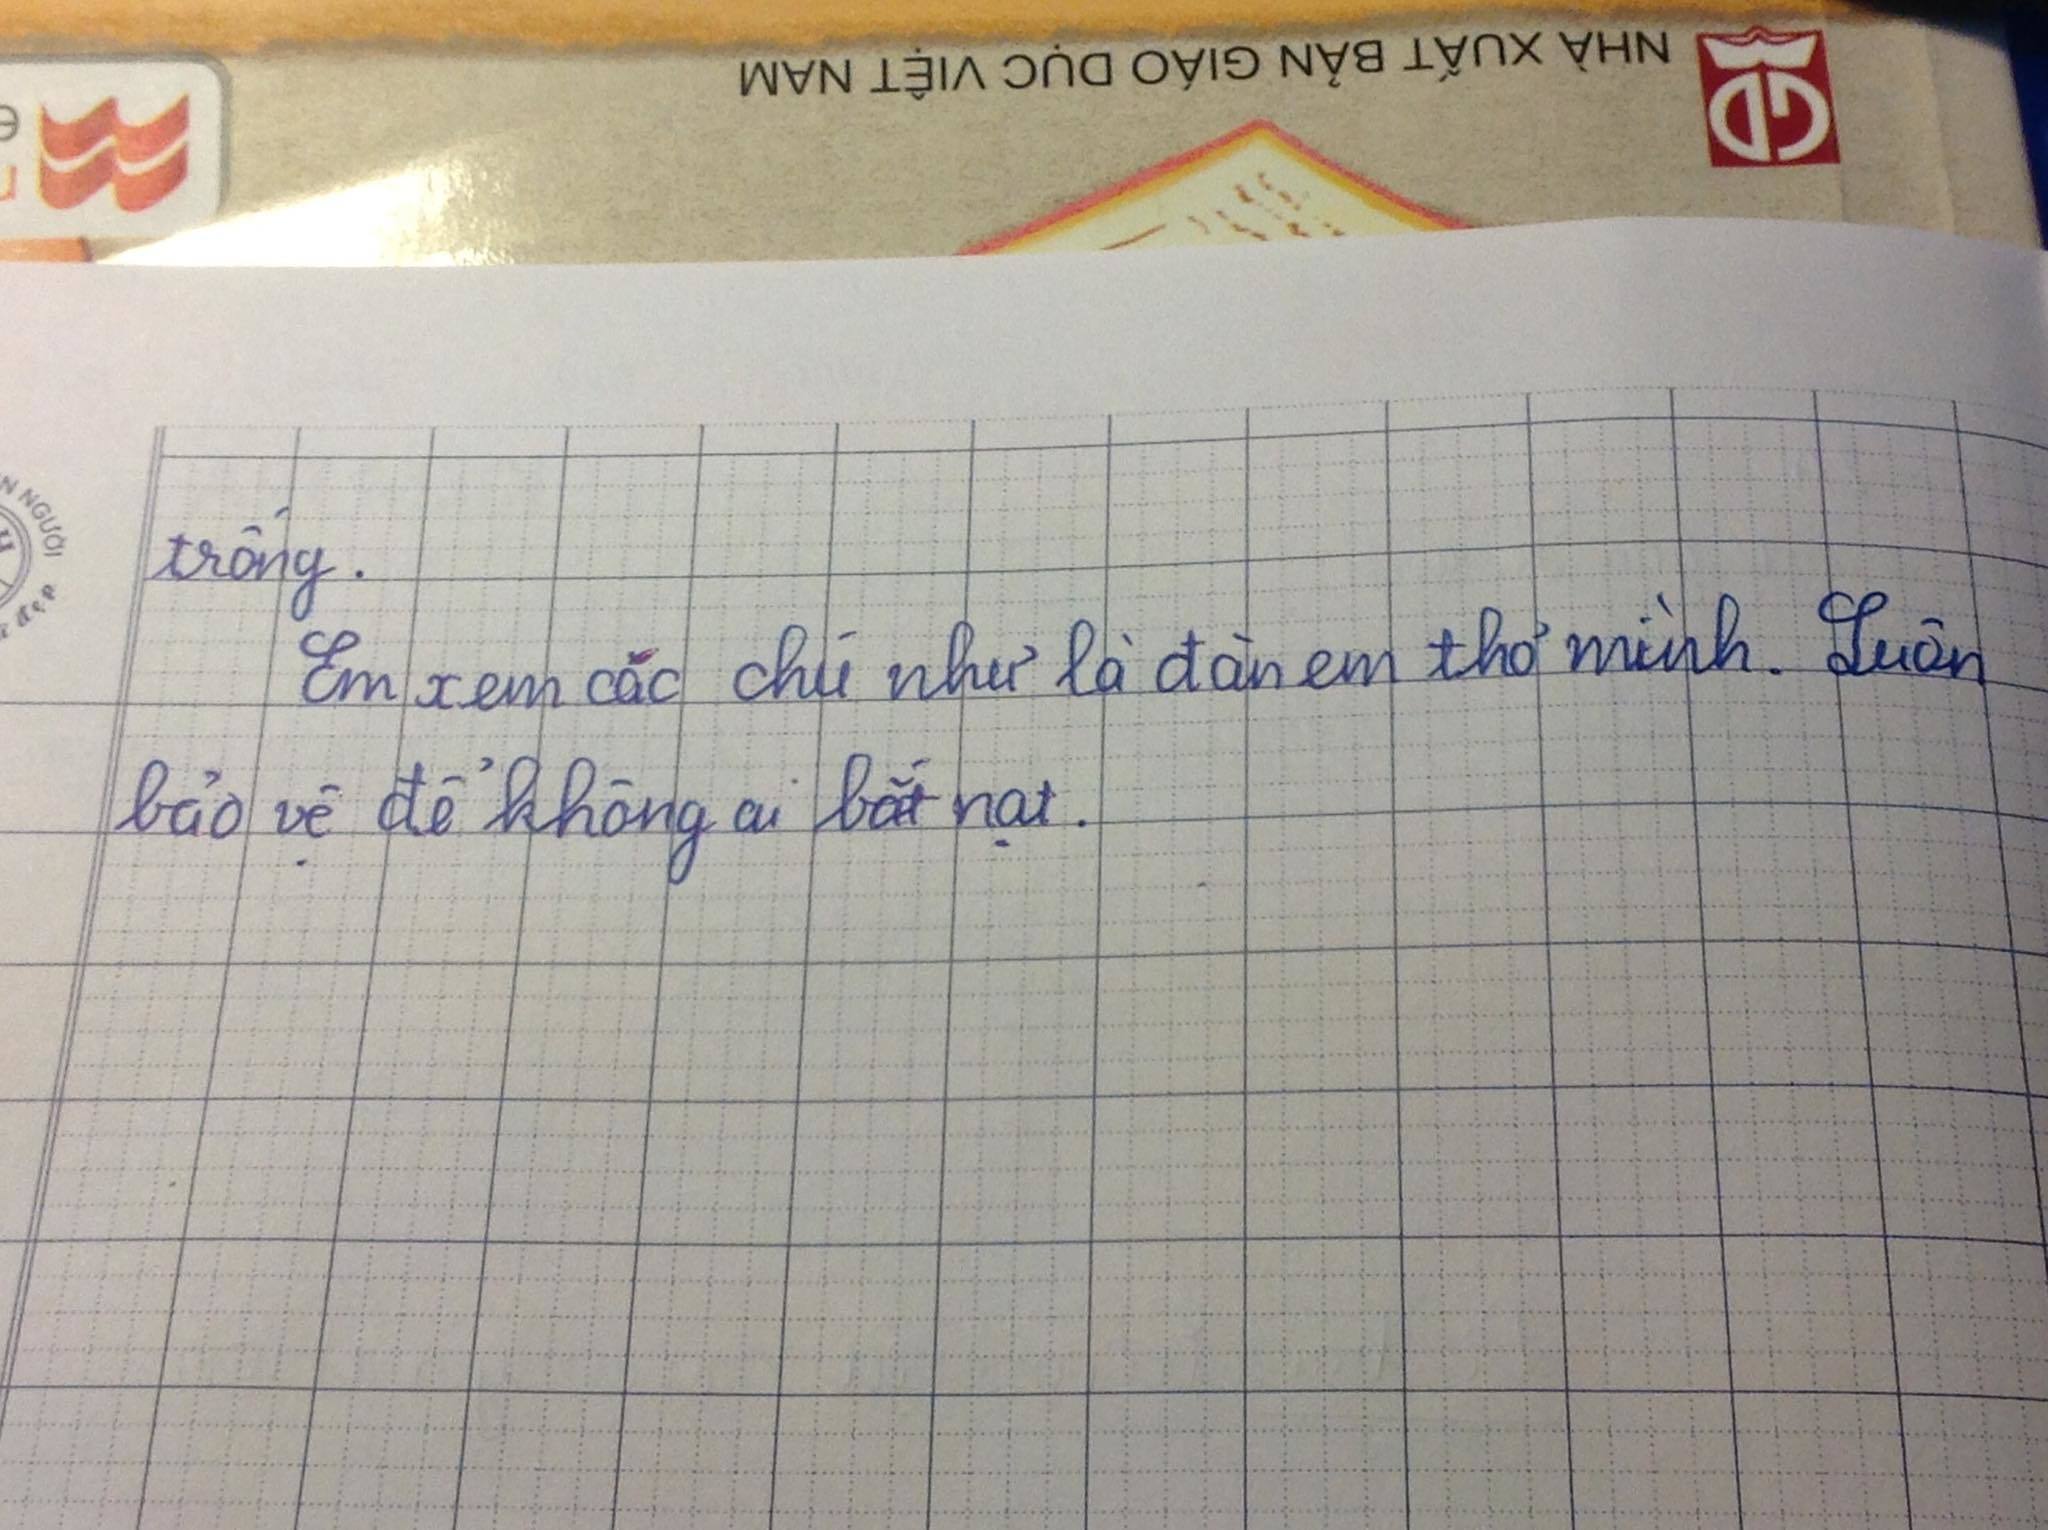 NHÀ XUẤT BẢN GIÁO DỤC VIỆT NAM
GD
N NGƯỜI
đẹp
trống.
Em xem các chú như là đàn em thơ mình. Luôn
bảo vệ để không ai bắt nạt.